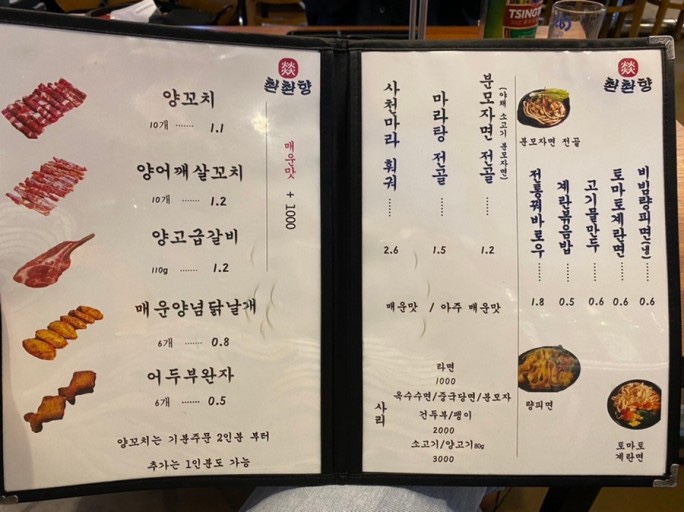 TSING
燚
촨촨향
양꼬치
10개 ······· 1.1
양어깨살꼬치
10개 ······· 1.2
양고급갈비
110g ······· 1.2
매운양념닭날개
6개 ······· 0.8
어두부완자
6개 ······· 0.5
매운맛 + 1000
양꼬치는 기본주문 2인분 부터
추가는 1인분도 가능
사천마라 훠궈 ······ 2.6
마라탕 전골 ······ 1.5
분모자면 전골 (야채 소고기 분모자면) ······ 1.2
매운맛 / 아주 매운맛
사리
라면
1000
옥수수면/중국당면/분모자
건두부/팽이
2000
소고기/양고기80g
3000
燚
촨촨향
분모자면 전골
전통꿔바로우 ······ 1.8
계란볶음밥 ······ 0.5
고기물만두 ······ 0.6
토마토계란면 ······ 0.6
비빔량피면(냉) ······ 0.6
량피면
토마토
계란면